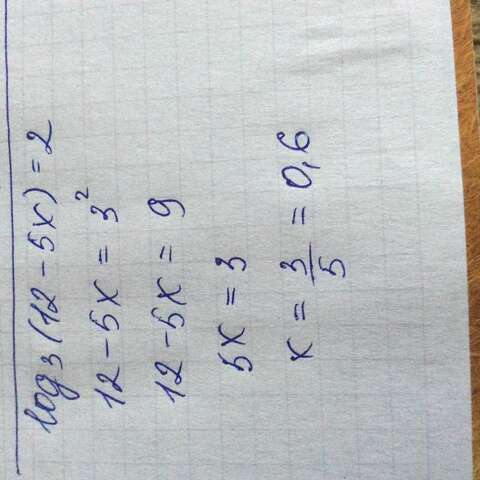 log₃(12 - 5x) = 2
12 - 5x = 3²
12 - 5x = 9
5x = 3
x = 3/5 = 0,6